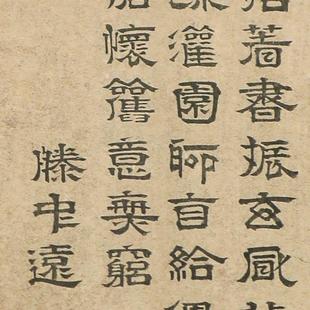 著書振玄風
灌園聊自給
懷舊意無窮
滕中遠